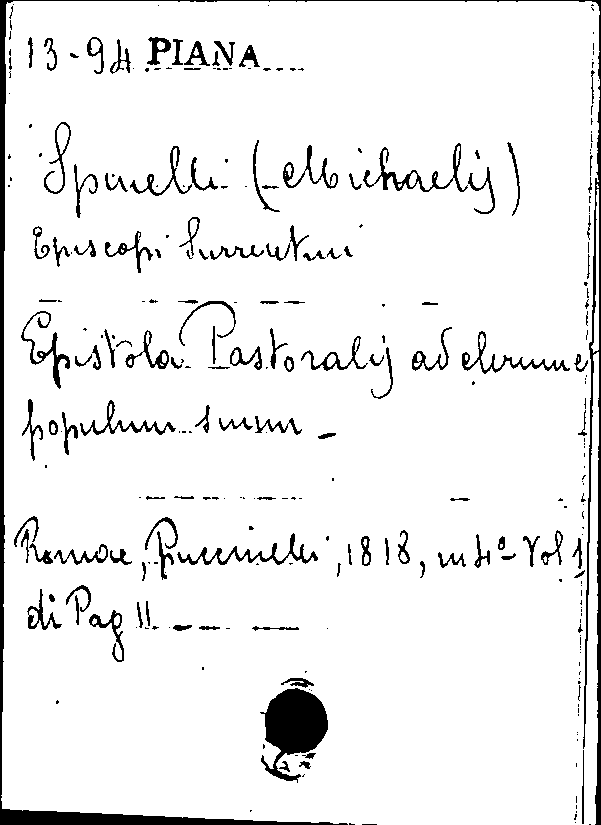 13-94 PIANA
Spinelli (Michaelis)
Episcopi Surrentini
Epistola Pastoralis ad clerum et
populum suum -
Romae, Puccinelli, 1818, in 4º Vol 1
di Pag 11